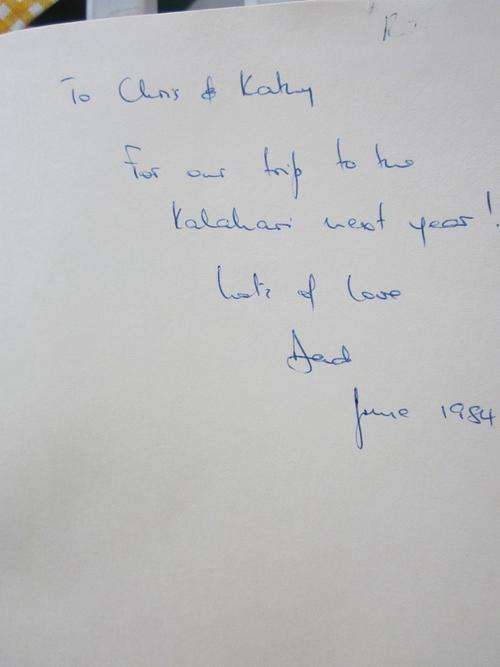 To Chris & Kathy
For our trip to the
Kalahari next year!
Lots of love
Dad
June 1984